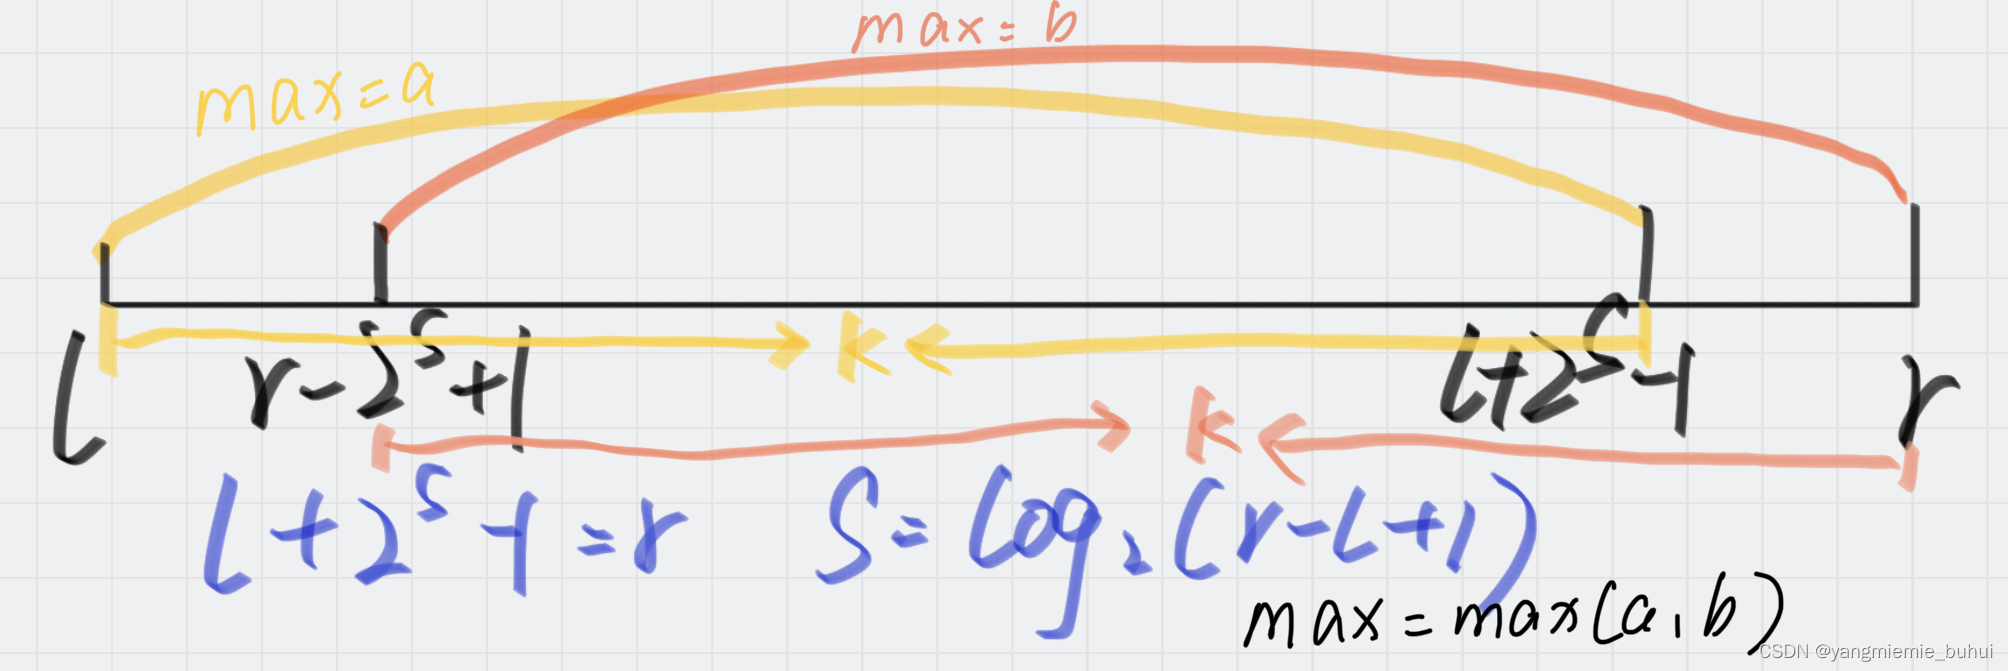 max = b
max = a
k
l r-2^s+1 l+2^s-1 r
k
l+2^s-1=r s=log₂(r-l+1)
max = max(a,b)
CSDN @yangmiemie_buhui